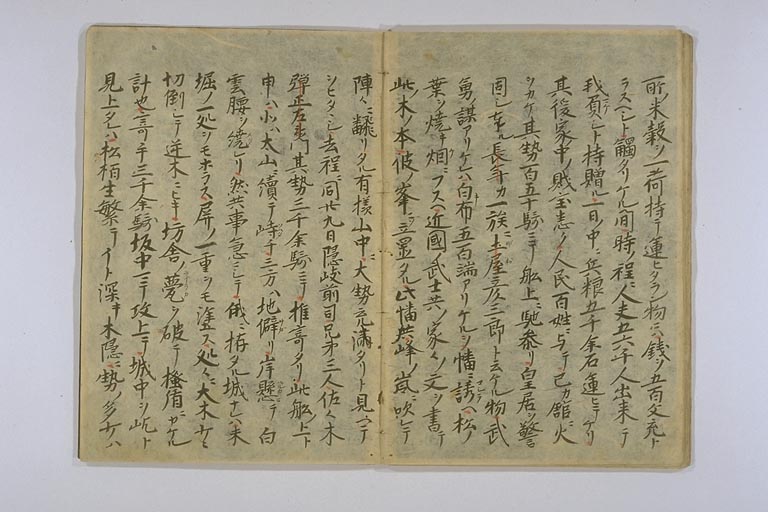 所米穀ヲ一荷持テ運ヒタラン物ニハ銭ヲ五百文充ト
ラスヘシト觸タリケル間時ノ程ニ人夫五六千人出来テ
我負シト持贈ル一日ノ中ニ兵粮五千余石運ヒテケリ
其後家中ノ財宝悉ク人民百姓ニ与テ己カ舘ニ火
シカケ其勢百五十騎ニテ舩上ニ馳参リ皇居ヲ警
固シ奉ル長年カ一族ニ土屋彦三郎ト云ケル物武
勇ノ謀アリケレハ白布五百端アリケルヲ幡ニ誘ヘ松ノ
葉ヲ焼テ烟ニフスヘ近國ノ武士共ノ家々ノ文ヲ書テ
此ノ木ノ本彼ノ峯ニソ立置タル此幡共峰ノ嵐ニ吹レテ
陣々ニ飜リタル有様山中ニ大勢充滿タリト見ヘテ
シヒタヽシ去程ニ同廿九日隠岐前司兄弟三人佐々木
弾正左衛門其勢三千余騎ニテ推寄タリ此舩上ト
申ハ小ハ大山ニ續テ峙チ三方ハ地僻リ岸懸テ白
雲腰ヲ繞レリ然共事急ニシテ俄ニ拵タル城ナレハ未
堀ノ一処ヲモホラス屏ノ一重ヲモ塗ス処々ニ大木少々
切倒シテ逆木ニヒキ坊舎ノ甍ヲ破テ掻楯ニカケル
計也寄手三千余騎坂中マテ攻上テ城中ヲ屹ト
見上タレハ松柏生繁テイト深キ木隠ニ勢ノ多少ハ